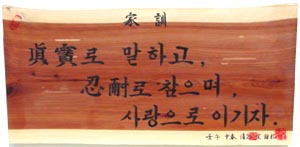 家訓
眞實로 말하고,
忍耐로 참으며,
사랑으로 이기자.
壬午